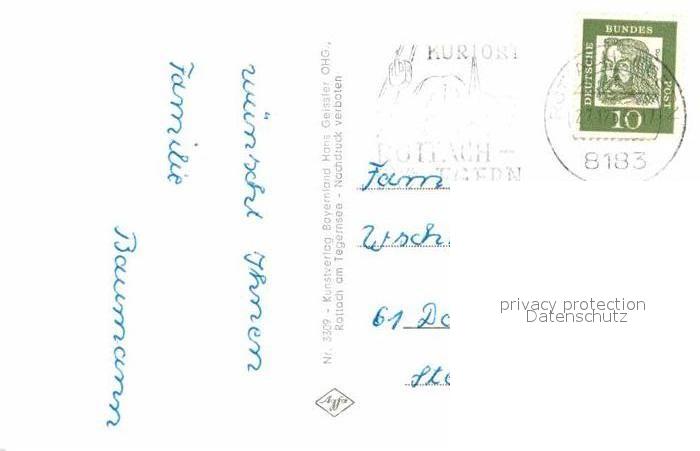 wünscht Ihnen
Familie
Baumann
Nr. 3309 - Kunstverlag Bayernland Hans Geissler OHG.,
Rottach am Tegernsee - Nachdruck verboten
Agfa
KURORT
ROTTACH-
EGERN
DEUTSCHE
BUNDES
POST
10
8183
Fam
Wsch
61 Da
Ste
privacy protection
Datenschutz